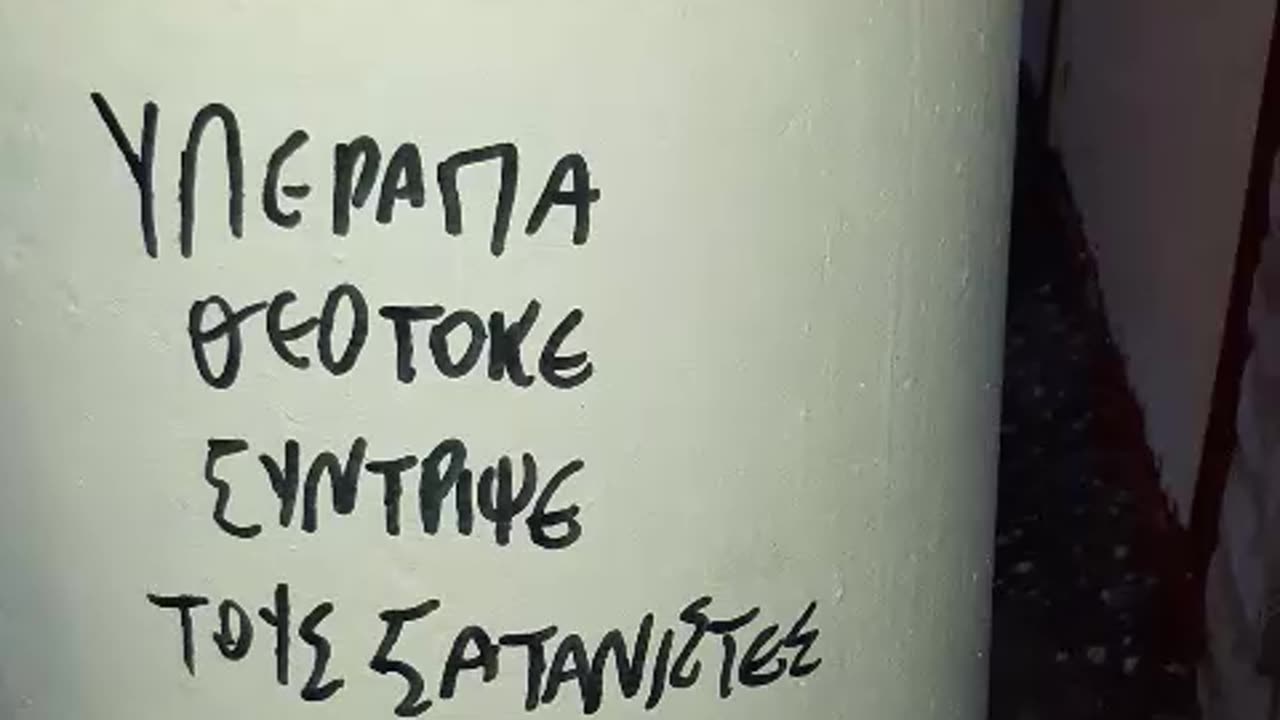 ΥΠΕΡΑΠΑ
ΘΕΟΤΟΚΕ
ΣΥΝΤΡΙΨΕ
ΤΟΥΣ ΣΑΤΑΝΙΣΤΕΣ